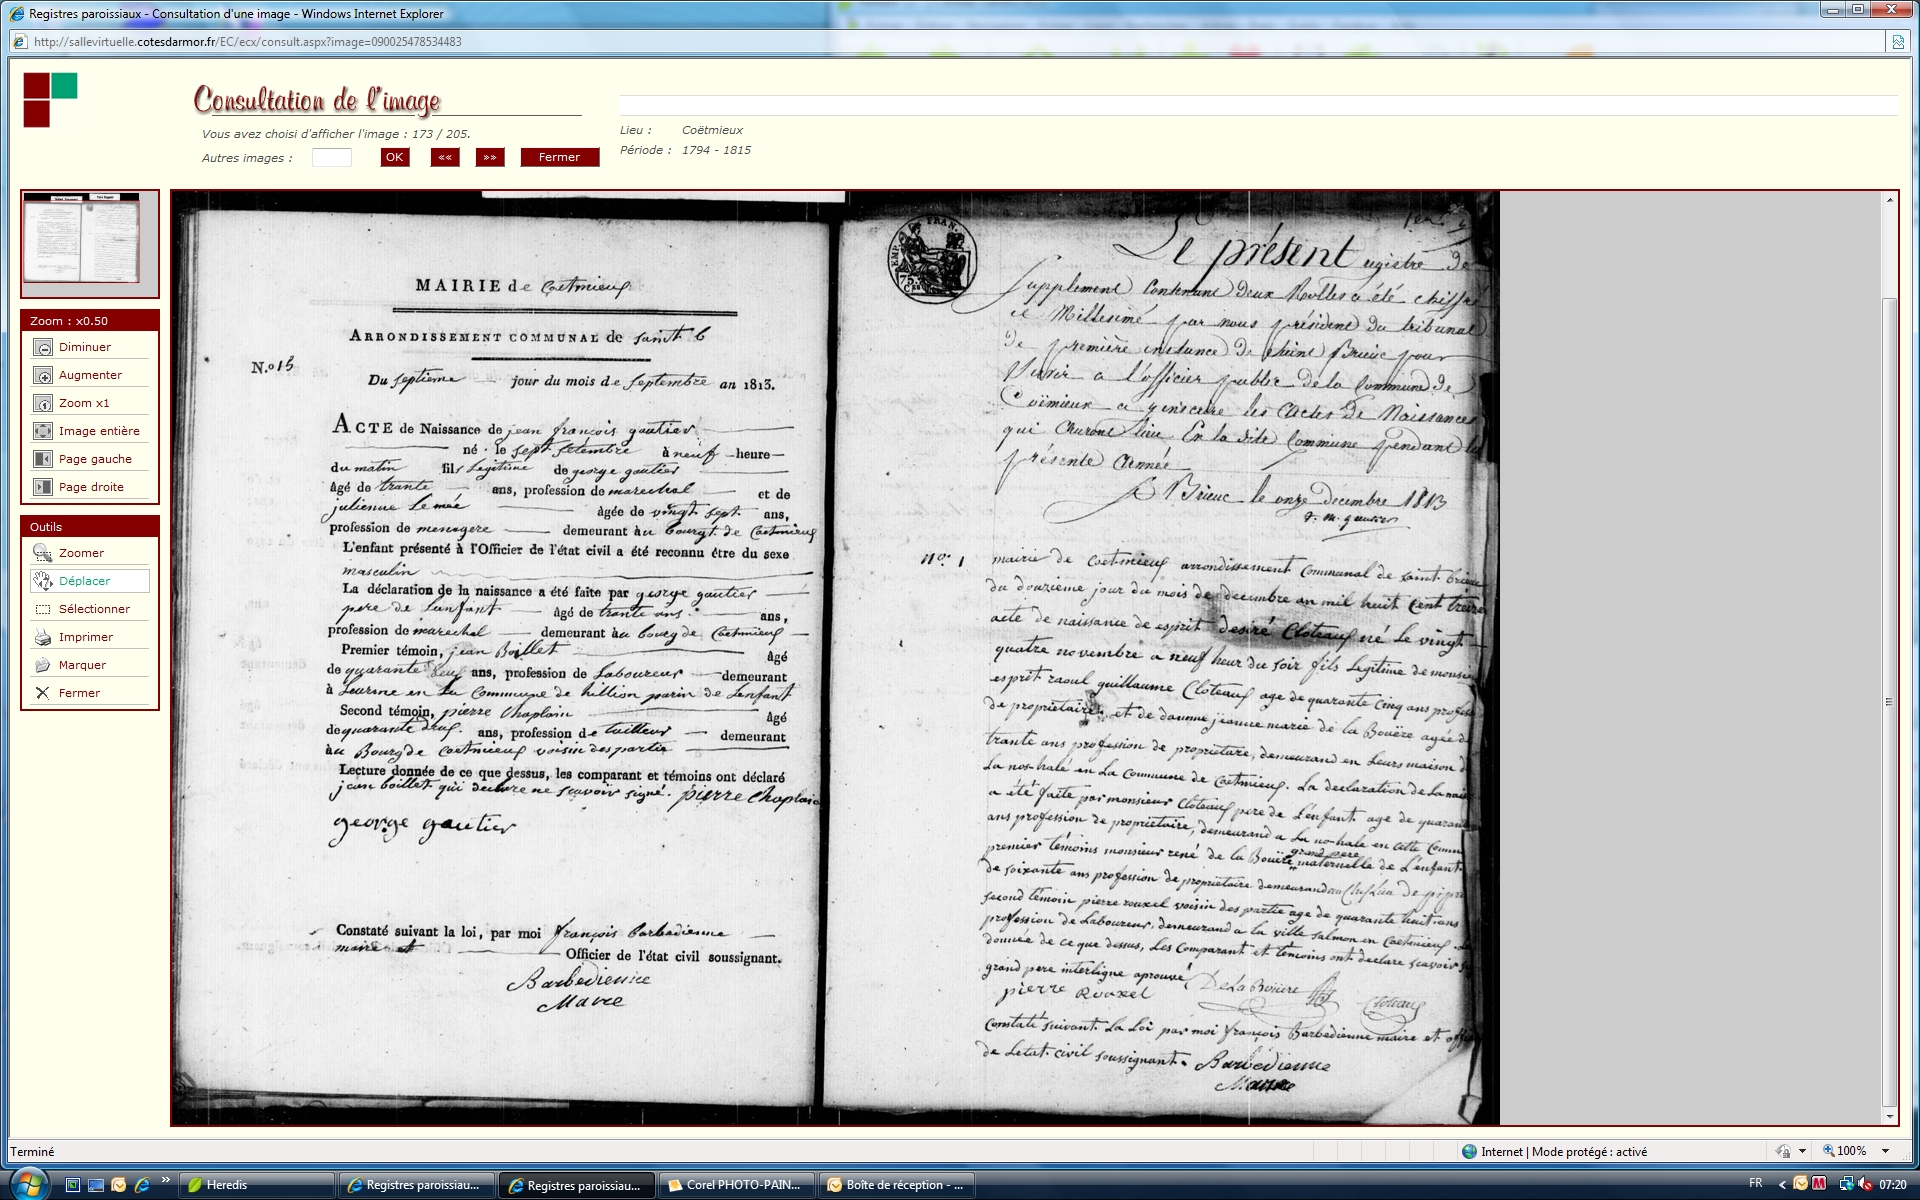 Registres paroissiaux - Consultation d'une image - Windows Internet Explorer
http://sallevirtuelle.cotesdarmor.fr/EC/ecx/consult.aspx?image=090025478534483
Consultation de l'image
Vous avez choisi d'afficher l'image : 173 / 205.
Autres images :
OK
««
»»
Fermer
Lieu : Coëtmieux
Période : 1794 - 1815
Zoom : x0.50
Diminuer
Augmenter
Zoom x1
Image entière
Page gauche
Page droite
Outils
Zoomer
Déplacer
Sélectionner
Imprimer
Marquer
Fermer
MAIRIE de Coetmieux
ARRONDISSEMENT COMMUNAL de saint b
N.º 15
Du septieme jour du mois de septembre an 1813.
ACTE de Naissance de jean françois gautier
né le sept setembre à neuf heure
du matin fils Legitime de george gautier
âgé de trante ans, profession de marechal et de
julienne Le mée âgée de vingt sept ans,
profession de menagere demeurant au bourgt de Coetmieux
L'enfant présenté à l'Officier de l'état civil a été reconnu être du sexe
masculin
La déclaration de la naissance a été faite par george gautier
pere de Lenfant âgé de trante ans ans,
profession de marechal demeurant au bourg de Coetmieux
Premier témoin, jean Boillet âgé
de quarante ans, profession de Laboureur demeurant
à en La Commune de hillion parin de Lenfant
Second témoin, pierre Chaplain âgé
de quarante deux ans, profession de tailleur demeurant
au Bourg de Coetmieux voisin des partie
Lecture donnée de ce que dessus, les comparant et témoins ont déclaré
jean boillet qui declare ne scavoir signé. pierre Chaplain
george gautier
Constaté suivant la loi, par moi françois barbedienne
maire et Officier de l'état civil soussignant.
Barbedienne
Maire
EMP. FRAN.
75 C.
Le présent registre de
supplement Contenant deux Rolles a été chiffré
et Millesimé par nous président du tribunal
de première instance de Saint Brieuc pour
servir a l'officier public de la Commune de
Coëmieux a y inscrire les Actes de Naissances
qui auront lieu En la dite Commune pendant la
présente Année
St Brieuc le onze decembre 1813
No. 1
mairie de Coetmieux arrondissement Communal de saint brieuc
du douzième jour du mois de decembre an mil huit Cent treize
acte de naissance de esprit desiré Cloteaux né Le vingt
quatre novembre a neuf heur du soir fils Legitime de monsieur
esprit raoul guillaume Cloteaux age de quarante Cinq ans
de proprietaire et de damme jeanne marie de la Bouëre agée de
trante ans profession de propriétaire, demeurand en Leurs maison de
La nos-halé en La Commune de Coetmieux. La declaration de La
a été faite par monsieur Cloteaux pere de L'enfant age de quarante
ans profession de propriétaire, demeurand a La no-hale en cette Comm
premier témoins monsieur rené de la Bouëre grand pere maternelle de L'enfant
de soixante ans profession de propriétaire demeurand au
second témoin pierre rouxel voisin des partie age de quarante huit ans
profession de Laboureur, demeurand a la ville salmon en Coetmieux
donnée de ce que dessus, Les Comparant et temoins ont declare scavoir
grand pere interligne aprouvé De La Bouëre
pierre Rouxel Cloteaux
Constaté suivant La Loi par moi françois Barbedienne maire et
de Letat civil soussignant. Barbedienne
Maire
Terminé
Internet | Mode protégé : activé
100%
Heredis
Registres paroissiau...
Registres paroissiau...
Corel PHOTO-PAIN...
Boîte de réception - ...
FR
07:20